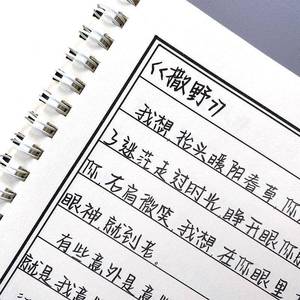 《撒野》
我想抬头暖阳春草 你
了迷茫走过时光 睁开眼你
你右肩微笑 我想在你眼里
眼神 就到老
有些意外是意
就是 我意